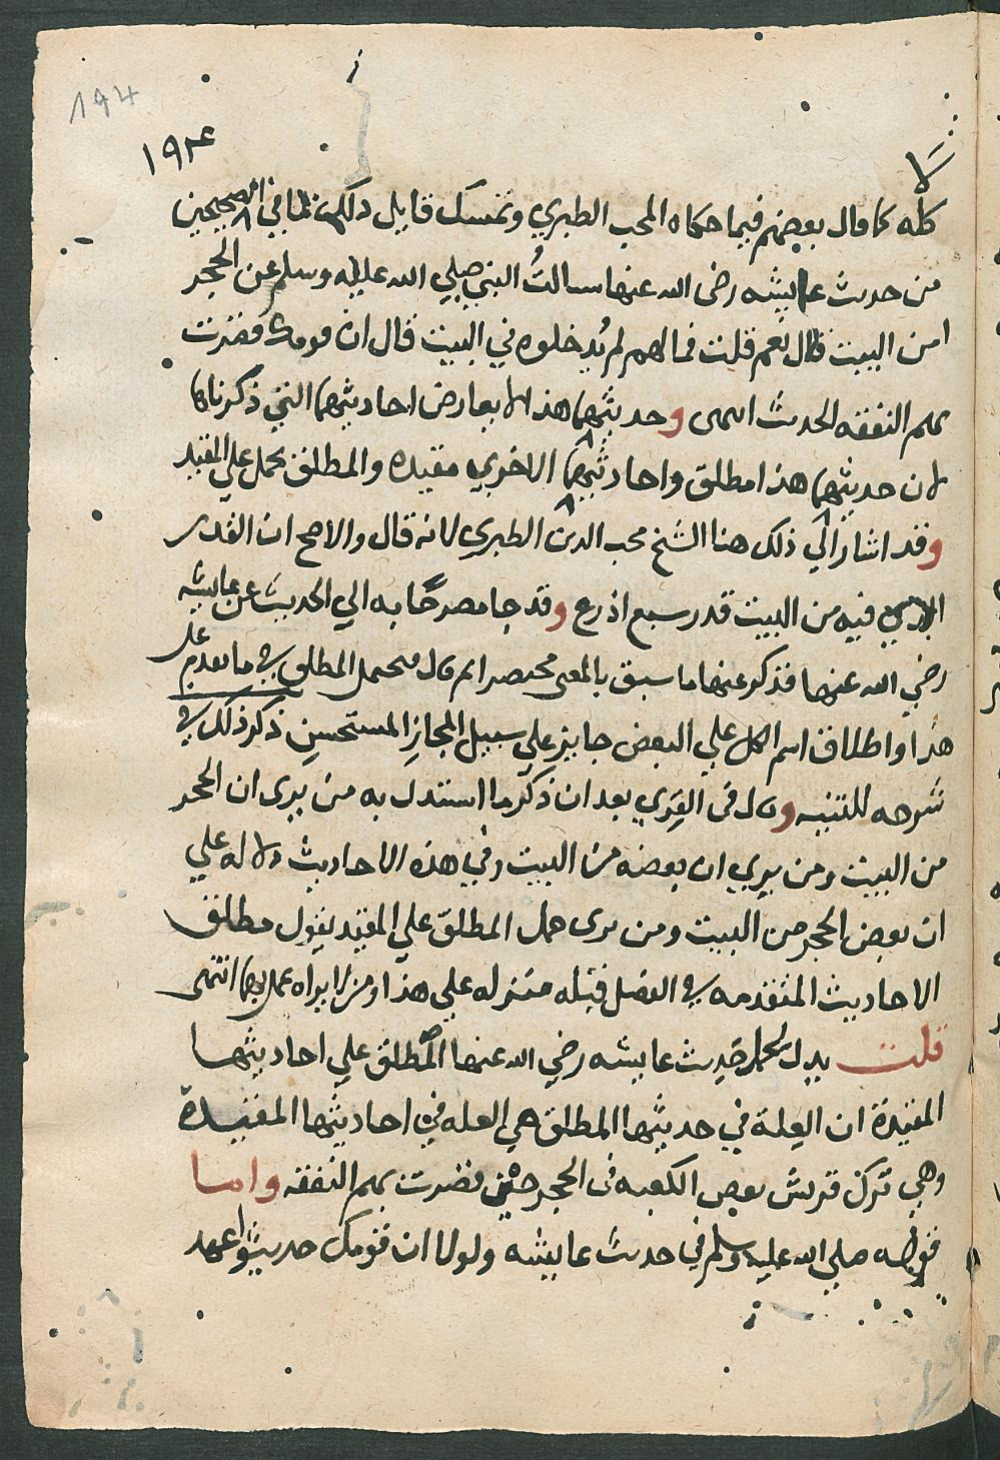 194
١٩٤
لا
كله كما قال بعضهم فيما حكاه المحب الطبري وتمسك قايل ذلك بما في الصحيحين
من حديث عايشه رضى الله عنها سالتُ النبي صلي الله عليه وسلم عن الحجر
امن البيت قال نعم قلت فما لهم لم يُدخلوه في البيت قال ان قومك قصرت
بهم النفقه الحديث انتهى وحديثها هذا لا يعارض احاديثها التي ذكرناها
لان حديثها هذا مطلق واحاديثها الاخري مقيده والمطلق يحمل علي المقيد
وقد اشار الي ذلك هنا الشيخ محب الدين الطبري لانه قال والاصح ان القدر
الذي فيه من البيت قدر سبع اذرع وقد جا مصرحًا به الي الحديث عن عايشه
رضي الله عنها فذكر عنها ما سبق بالمعنى مختصرا ثم قال فيحمل المطلق في ما تقدم على
هذا واطلاق اسم الكل علي البعض جايز علي سبيل المجاز المستحسن ذكر ذلك في
شرحه للتنبيه وقال في القِرَي بعد ان ذكر ما استدل به من يرى ان الحجر
من البيت ومن يري ان بعضه من البيت وفي هذه الاحاديث دلاله علي
ان بعض الحجر من البيت ومن يرى حمل المطلق علي المقيد يقول مطلق
الاحاديث المتقدمه في الفصل قبله منزله علي هذا ومن لا يراه عمل بهما انتهى
قلت يدل لحمل حديث عايشه رضي الله عنها المطلق علي احاديثها
المقيدة ان العِلة في حديثها المطلق هي العله في احاديثها المقيدة
وهي ترك قريش بعض الكعبه في الحجر حين قصرت بهم النفقه واما
قوله صلي الله عليه وسلم في حديث عايشه ولولا ان قومك حديثوا عهد